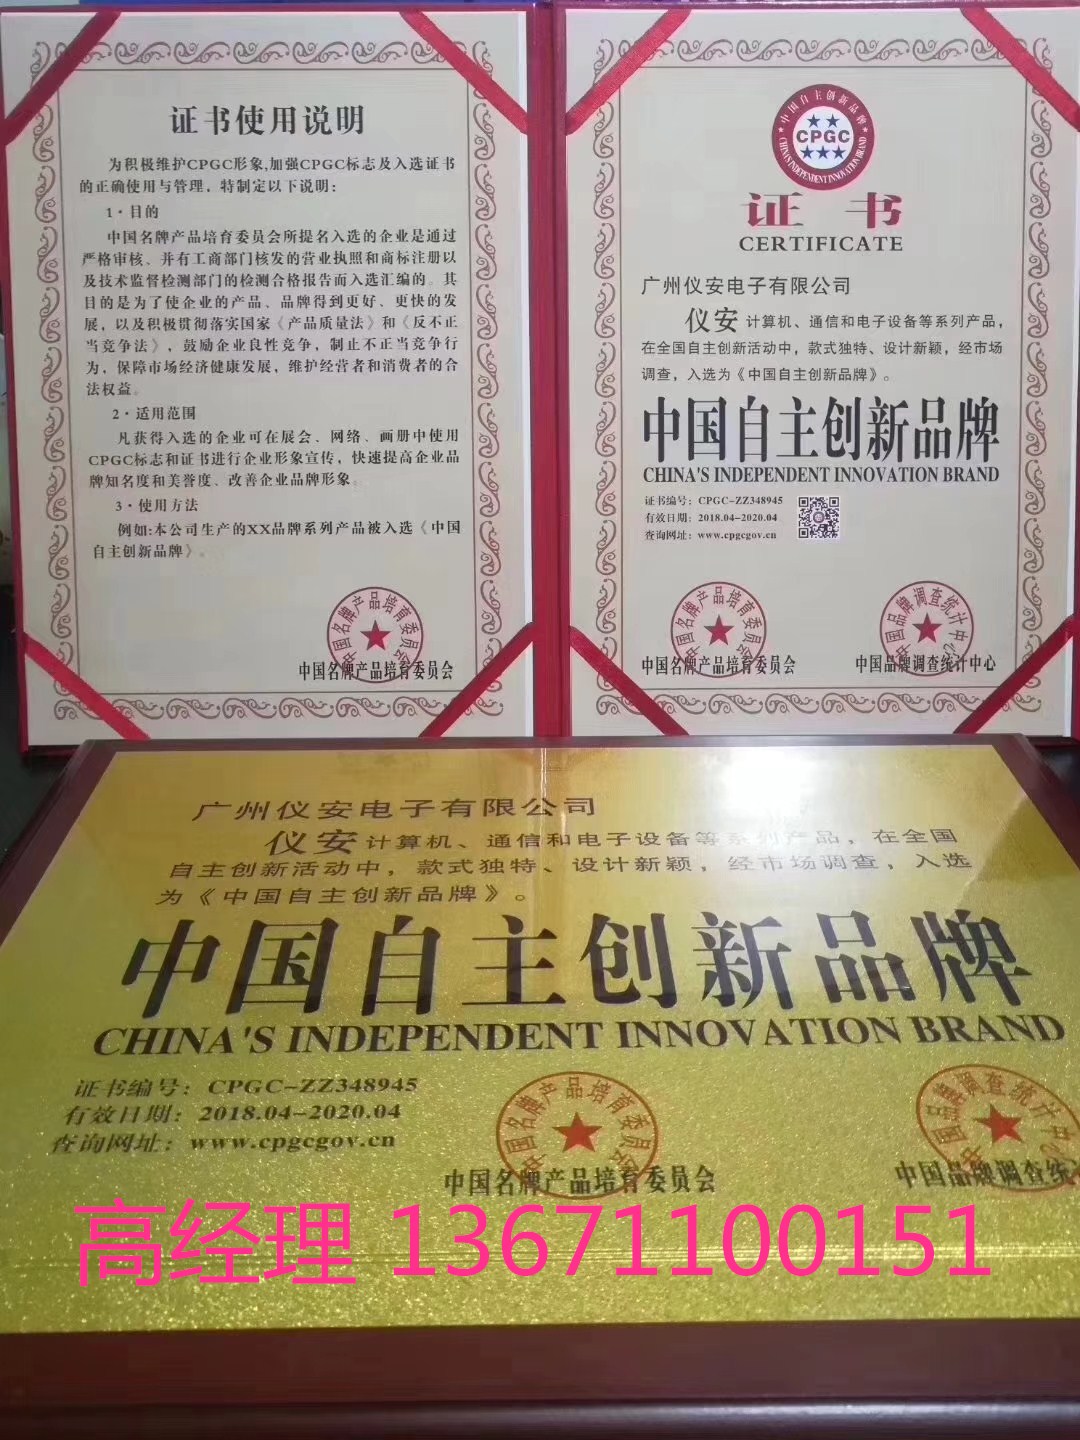 证书使用说明
为积极维护CPGC形象,加强CPGC标志及入选证书
的正确使用与管理，特制定以下说明：
1·目的
中国名牌产品培育委员会所提名入选的企业是通过
严格审核、并有工商部门核发的营业执照和商标注册以
及技术监督检测部门的检测合格报告而入选汇编的。其
目的是为了使企业的产品、品牌得到更好、更快的发
展，以及积极贯彻落实国家《产品质量法》和《反不正
当竞争法》，鼓励企业良性竞争，制止不正当竞争行
为，保障市场经济健康发展，维护经营者和消费者的合
法权益。
2·适用范围
凡获得入选的企业可在展会、网络、画册中使用
CPGC标志和证书进行企业形象宣传，快速提高企业品
牌知名度和美誉度、改善企业品牌形象。
3·使用方法
例如:本公司生产的XX品牌系列产品被入选《中国
自主创新品牌》。
中国名牌产品培育委员会
中国名牌产品培育委员会
中国自主创新品牌
CPGC
CHINA'S INDEPENDENT INNOVATION BRAND
证书
CERTIFICATE
广州仪安电子有限公司
仪安 计算机、通信和电子设备等系列产品，
在全国自主创新活动中，款式独特、设计新颖，经市场
调查，入选为《中国自主创新品牌》。
中国自主创新品牌
CHINA'S INDEPENDENT INNOVATION BRAND
证书编号：CPGC-ZZ348945
有效日期：2018.04-2020.04
查询网址：www.cpgcgov.cn
中国名牌产品培育委员会
中国名牌产品培育委员会
中国品牌调查统计中心
中国品牌调查统计中心
广州仪安电子有限公司
仪安 计算机、通信和电子设备等系列产品，在全国
自主创新活动中，款式独特、设计新颖，经市场调查，入选
为《中国自主创新品牌》。
中国自主创新品牌
CHINA'S INDEPENDENT INNOVATION BRAND
证书编号：CPGC-ZZ348945
有效日期：2018.04-2020.04
查询网址：www.cpgcgov.cn
中国名牌产品培育委员会
中国名牌产品培育委员会
中国品牌调查统计中心
中国品牌调查统
高经理 13671100151